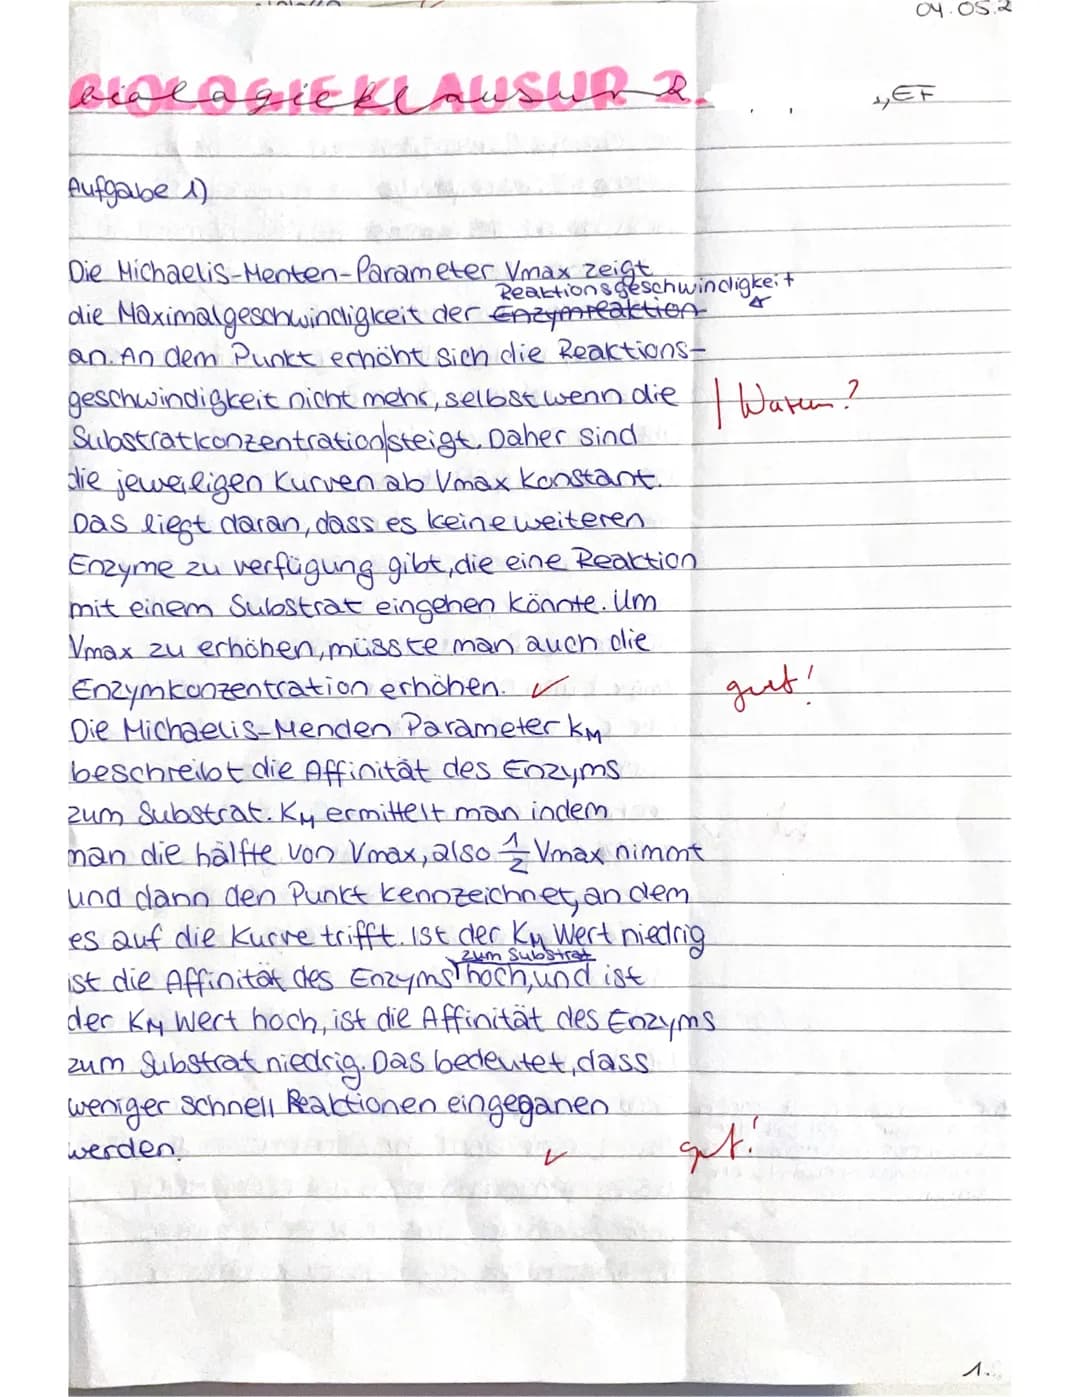 04.05.2
BIOLOGIEKLAUSUR 2.
, EF
Aufgabe 1)
Die Michaelis-Menten-Parameter Vmax zeigt
Reaktionsgeschwindigkeit
die Maximalgeschwindigkeit der Enzymreaktion
an. An dem Punkt erhöht sich die Reaktions-
geschwindigkeit nicht mehr, selbst wenn die | Warum?
Substratkonzentration steigt. Daher sind
die jeweiligen Kurven ab Vmax konstant.
Das liegt daran, dass es keine weiteren
Enzyme zu verfügung gibt, die eine Reaktion
mit einem Substrat eingehen könnte. Um
Vmax zu erhöhen, müsste man auch die
Enzymkonzentration erhöhen. ✓ gut!
Die Michaelis-Menden Parameter KM
beschreibt die Affinität des Enzyms
zum Substrat. KM ermittelt man indem
man die hälfte von Vmax, also 1/2 Vmax nimmt
und dann den Punkt kennzeichnet, an dem
es auf die Kurve trifft. Ist der KM Wert niedrig
zum Substrat
ist die Affinität des Enzyms hoch, und ist
der KM Wert hoch, ist die Affinität des Enzyms
zum Substrat niedrig. Das bedeutet, dass
weniger schnell Reaktionen eingeganen
werden. ✓ gut!
1.